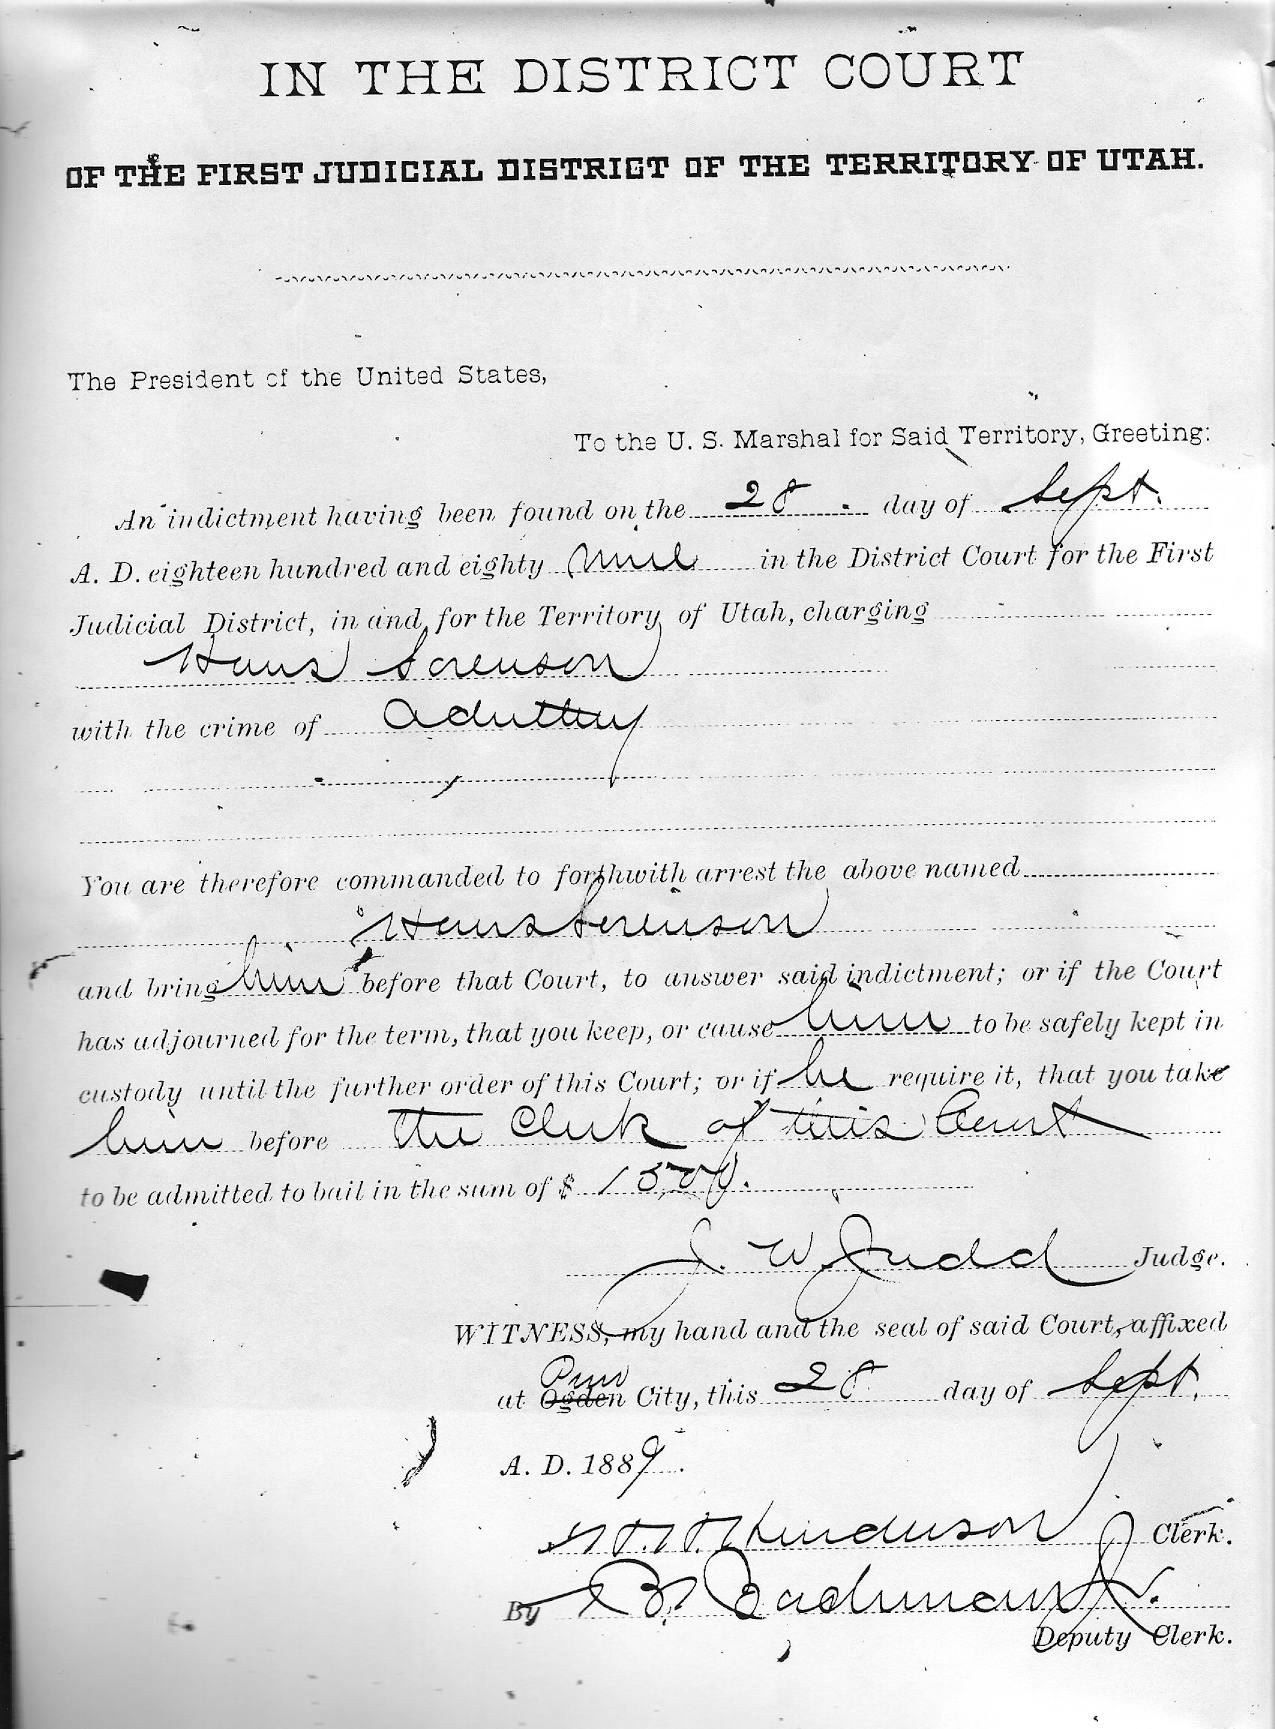 IN THE DISTRICT COURT
OF THE FIRST JUDICIAL DISTRICT OF THE TERRITORY OF UTAH.
The President of the United States,
To the U. S. Marshal for Said Territory, Greeting:
An indictment having been found on the 28 day of Sept.
A. D. eighteen hundred and eighty nine in the District Court for the First
Judicial District, in and for the Territory of Utah, charging
Hans Sorenson
with the crime of Adultery
You are therefore commanded to forthwith arrest the above named
Hans Sorenson
and bring him before that Court, to answer said indictment; or if the Court
has adjourned for the term, that you keep, or cause him to be safely kept in
custody until the further order of this Court; or if he require it, that you take
him before the Clerk of this Court
to be admitted to bail in the sum of $ 1500.
J. W. Judd Judge.
WITNESS, my hand and the seal of said Court, affixed
Provo
at Ogden City, this 28 day of Sept.
A. D. 1889.
H. H. Henderson Clerk.
By B. Bachman Jr.
Deputy Clerk.